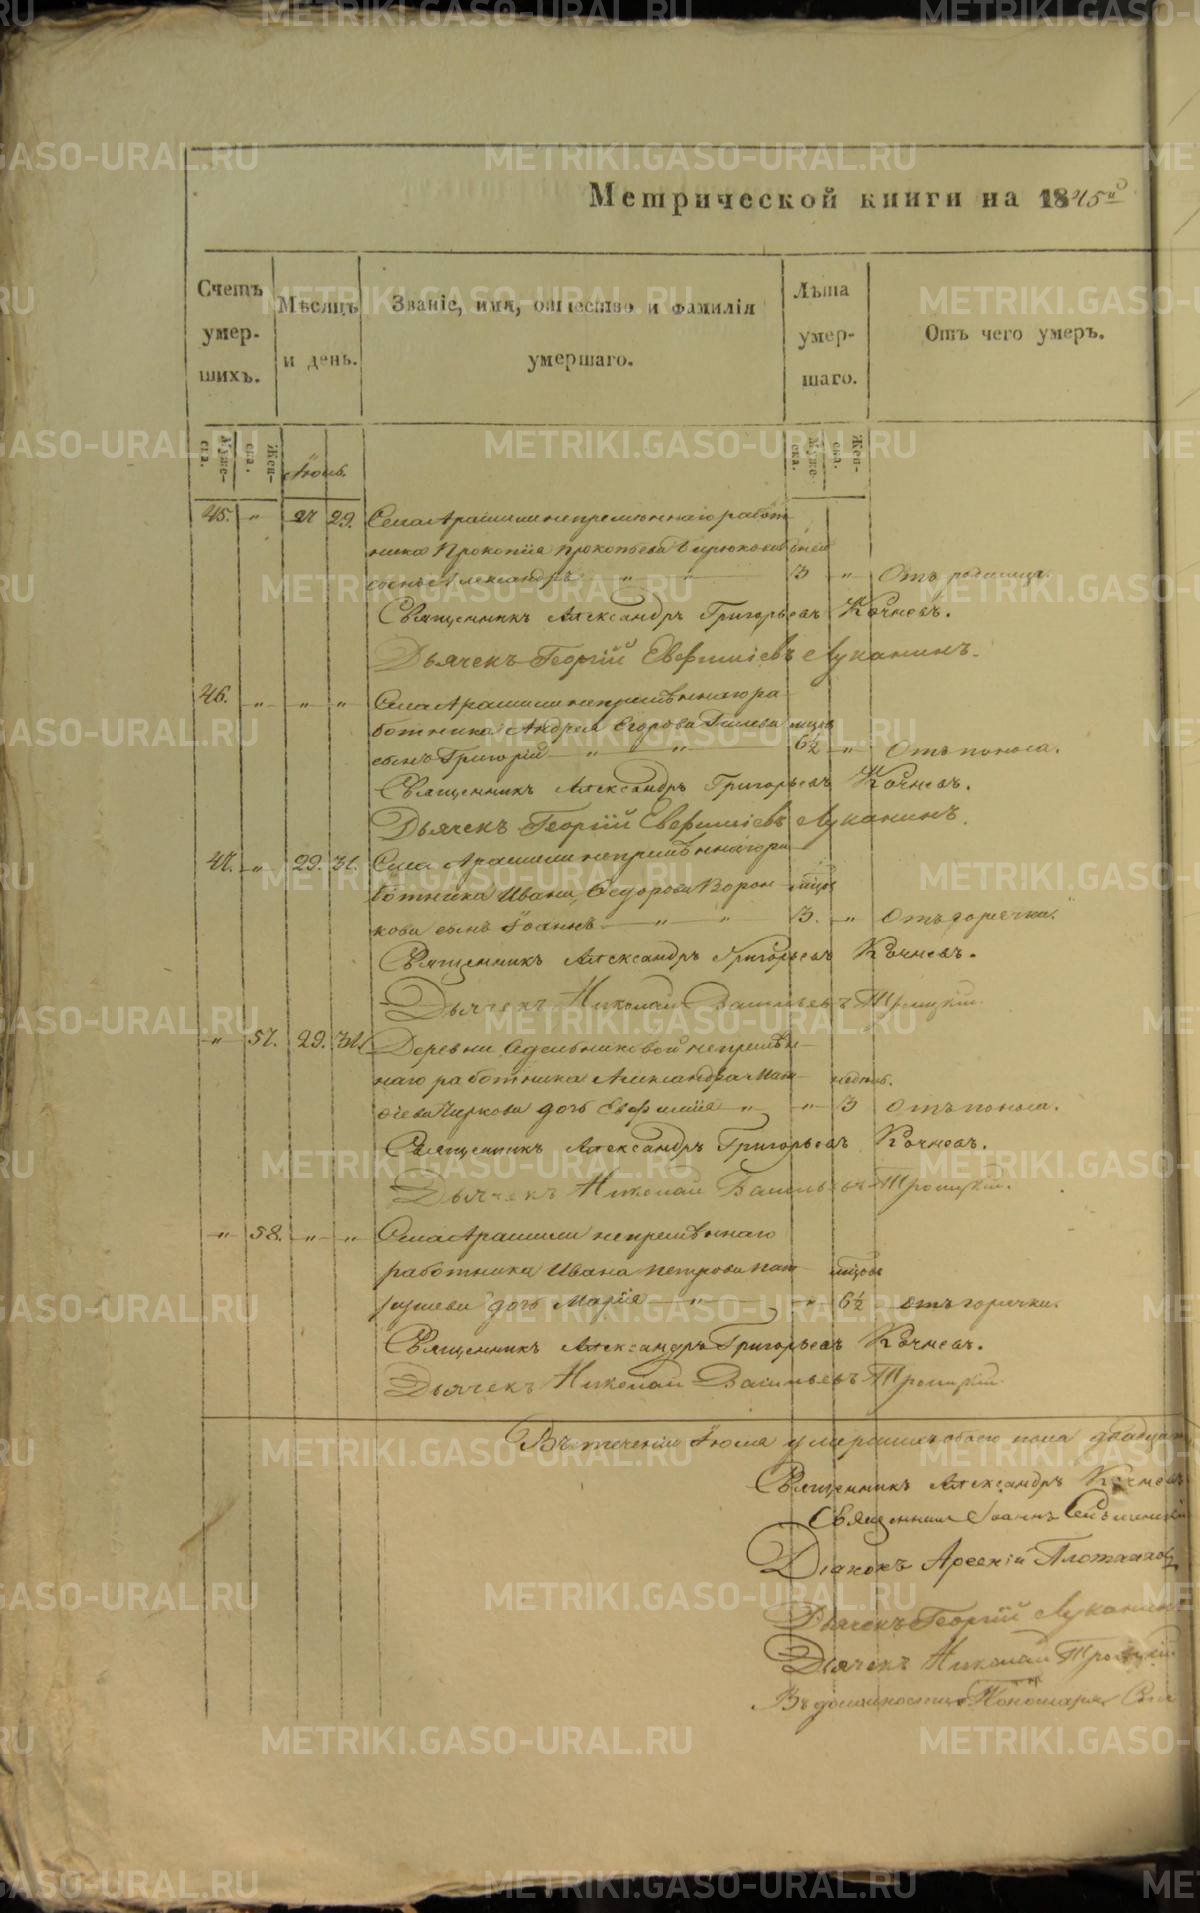 Метрической книги на 1845й
Счетъ умер-шихъ.
Мѣсяцъ и день.
Званіе, имя, отчество и фамилія умершаго.
Лѣта умер-шаго.
Отъ чего умеръ.
Муже-ска. Жен-ска.
Іюль.
Муже-ска. Жен-ска.
45. " 27 29. Села Арашили непремѣннаго работ-
ника Прокопія Прокопьева дней
сынъ Александръ " " 3 " Отъ родимца.
Священникъ Александръ Григорьевъ Кочневъ.
Дьячекъ Георгій Евфиміевъ Луканинъ.
46. " " " Села Арашили непремѣннаго ра-
ботника Андрея Егорова Гилева мѣсяц
сынъ Григорій " " 6½ " Отъ поноса.
Священникъ Александръ Григорьевъ Кочневъ.
Дьячекъ Георгій Евфиміевъ Луканинъ.
47. " 29. 31. Села Арашили непремѣннаго ра-
ботника Ивана Ѳедорова Ворон- мѣсяц
кова сынъ Іоаннъ " " 3. " Отъ горячки.
Священникъ Александръ Григорьевъ Кочневъ.
Дьячекъ Николай Васильевъ Троицкій.
" 57. 29. 31. Деревни Седельниковой непремѣн-
наго работника Александра Мат- недѣль.
ѳіева Чиркова дочь Евфимія " " 3 Отъ поноса.
Священникъ Александръ Григорьевъ Кочневъ.
Дьячекъ Николай Васильевъ Троицкій.
" 58. " " Села Арашили непремѣннаго
работника Ивана Петрова мѣсцовъ
дочь Марія " " 6½ отъ горячки.
Священникъ Александръ Григорьевъ Кочневъ.
Дьячекъ Николай Васильевъ Троицкій.
Въ теченіи Іюля умершихъ обоего пола двадцать
Священникъ Александръ Кочневъ
Священникъ Іоаннъ
Діаконъ Арсеній Плотниковъ
Дьячекъ Георгій Луканинъ
Дьячекъ Николай Троицкій
Въ должности Пономаря
METRIKI.GASO-URAL.RU